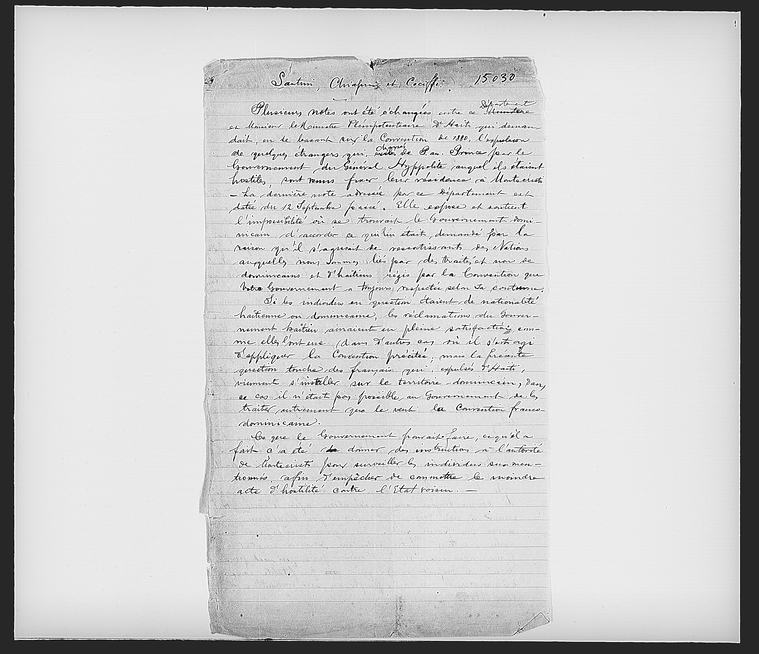 Santini, Chiapini et Cocciffi. 15030
Plusieurs notes ont été échangées entre ce Département
et Monsieur le Ministre Plénipotentiaire d'Haïti qui deman
dait, en se basant sur la Convention de 1880, l'expulsion
de quelques étrangers qui, chassés de Port-au-Prince par le
Gouvernement du Général Hyppolite auquel ils étaient
hostiles, sont venus fixer leur résidence à Montecristi
– La dernière note adressée par ce Département est
datée du 12 Septembre passé. Elle expose et soutient
l'impossibilité où se trouvait le Gouvernement domi-
nicain d'accorder ce qui lui était demandé par la
raison qu'il s'agissait de ressortissants des Nations
auxquelles nous sommes liés par des traités et non de
dominicains et d'haïtiens régis par la Convention que
Votre Gouvernement a toujours respectée selon sa coutume.
Si les individus en question étaient de nationalité
haïtienne ou dominicaine, les réclamations du Gouver-
nement haïtien auraient eu pleine satisfaction, com-
me elles l'ont eue dans d'autres cas où il s'est agi
d'appliquer la Convention précitée; mais la présente
question touche des français qui, expulsés d'Haïti,
viennent s'installer sur le territoire dominicain, dans
ce cas il n'était pas possible au Gouvernement de les
traiter autrement que le veut la Convention franco-
dominicaine.
Ce que le Gouvernement pouvait faire, ce qu'il a
fait c'a été de donner des instructions à l'autorité
de Montecristi pour surveiller les individus sus-men-
tionnés, afin d'empêcher de commettre le moindre
acte d'hostilité contre l'Etat voisin. –